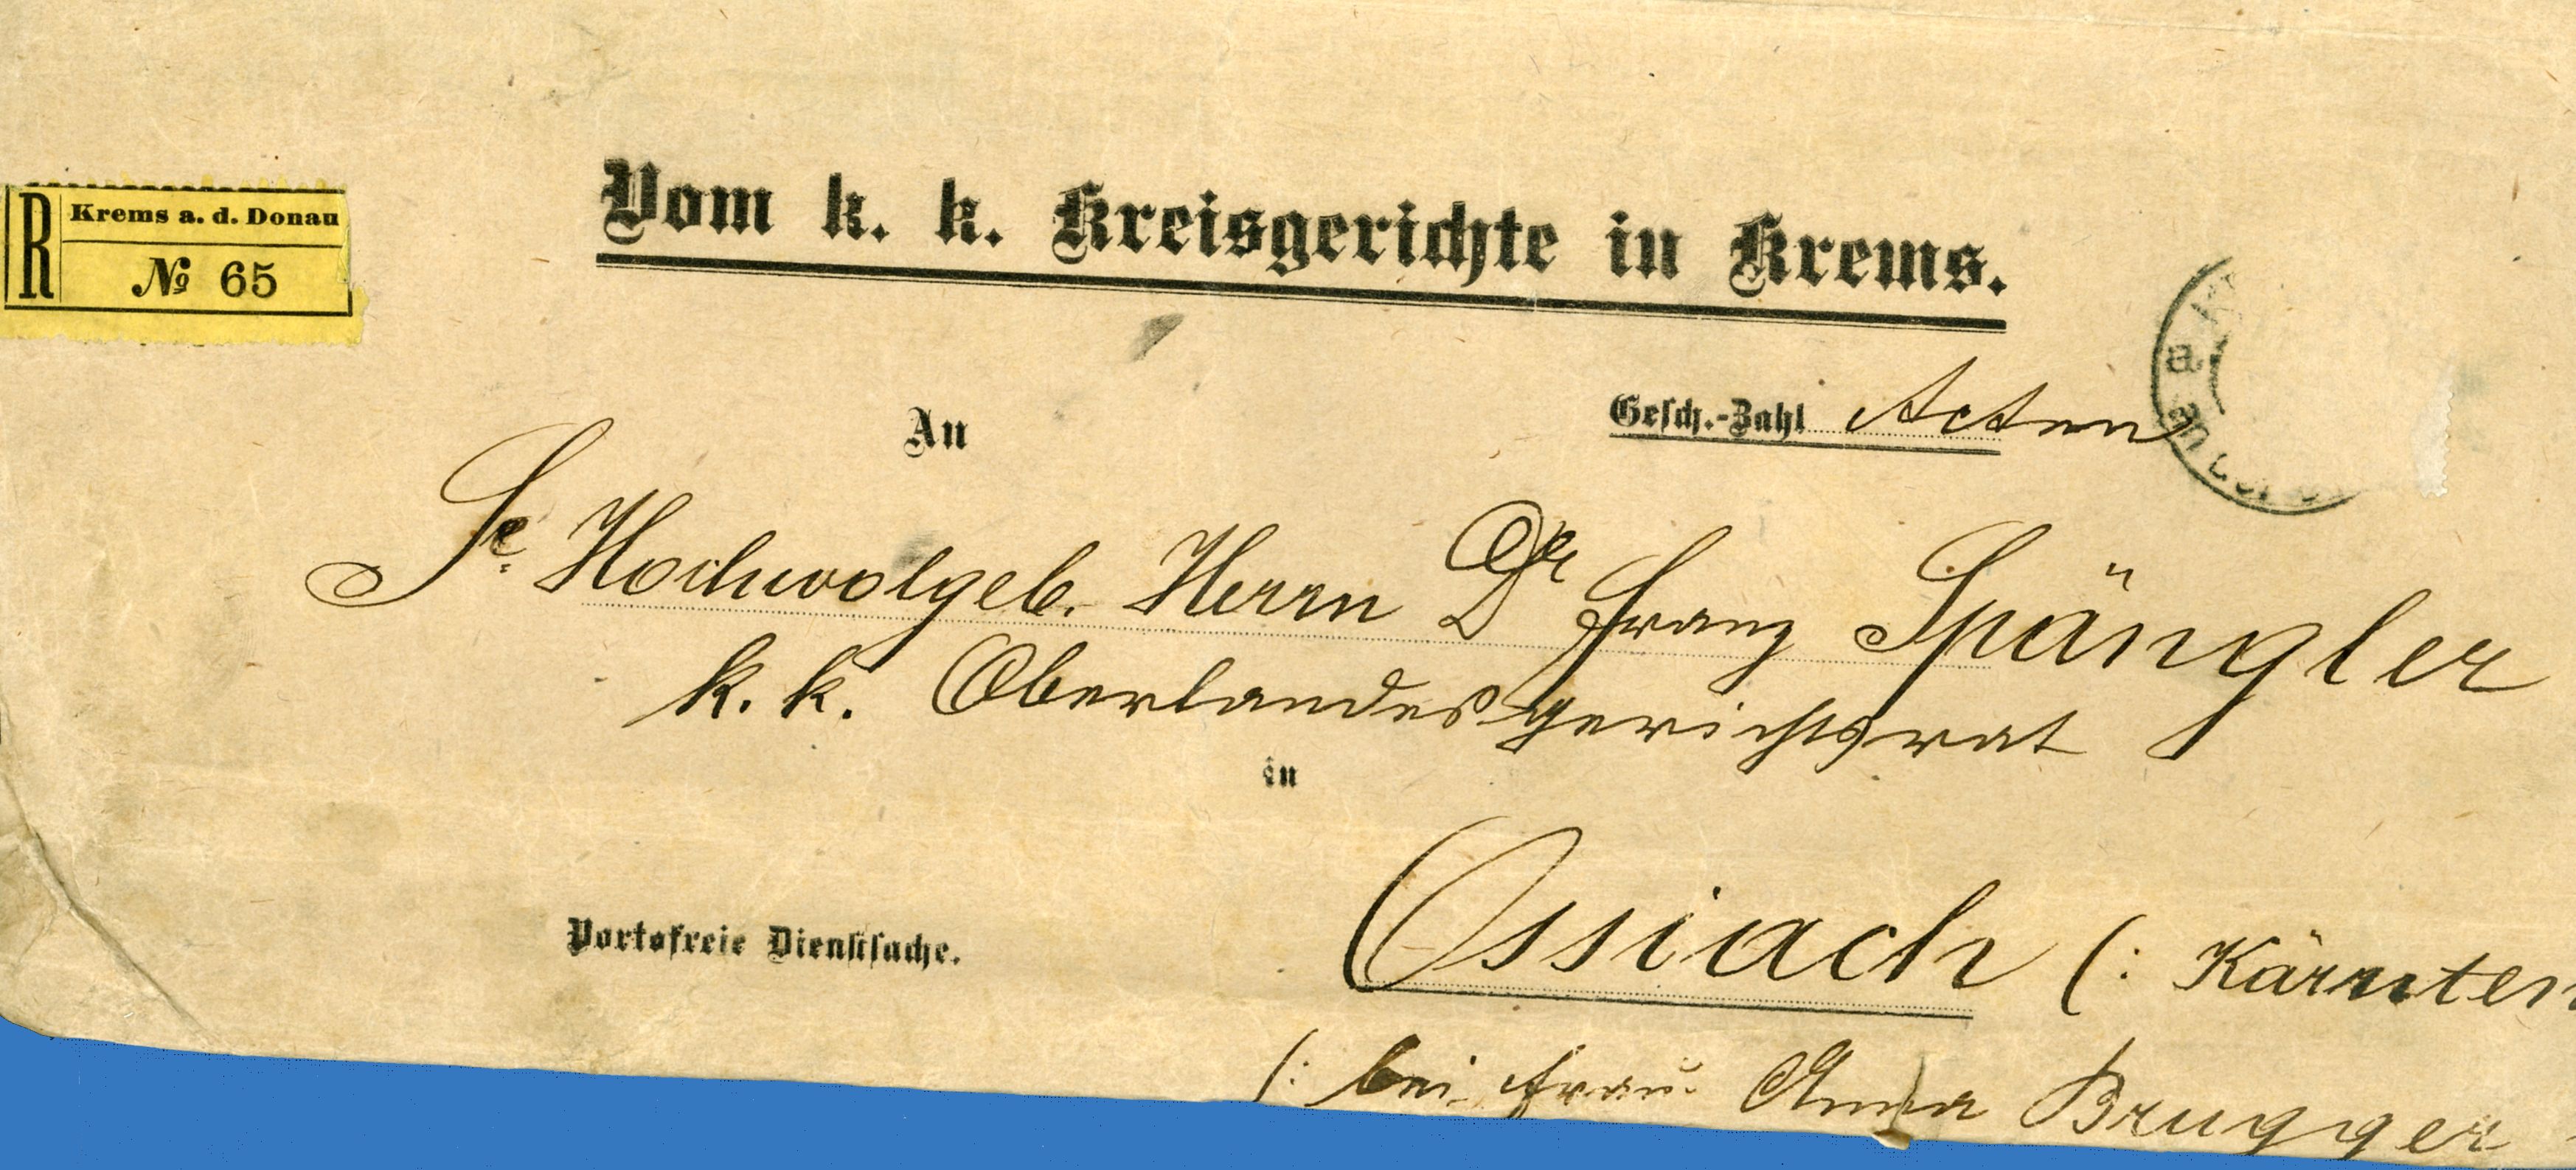 Vom k. k. Kreisgerichte in Krems.
R Krems a. d. Donau
№ 65
An
Gesch.-Zahl Acten
Sr. Hochwolgeb. Herrn Dr Franz Spängler
k. k. Oberlandesgerichtsrat
in
Portofreie Dienstsache.
Ossiach (: Kärnten
(: bei Frau Anna Brugger